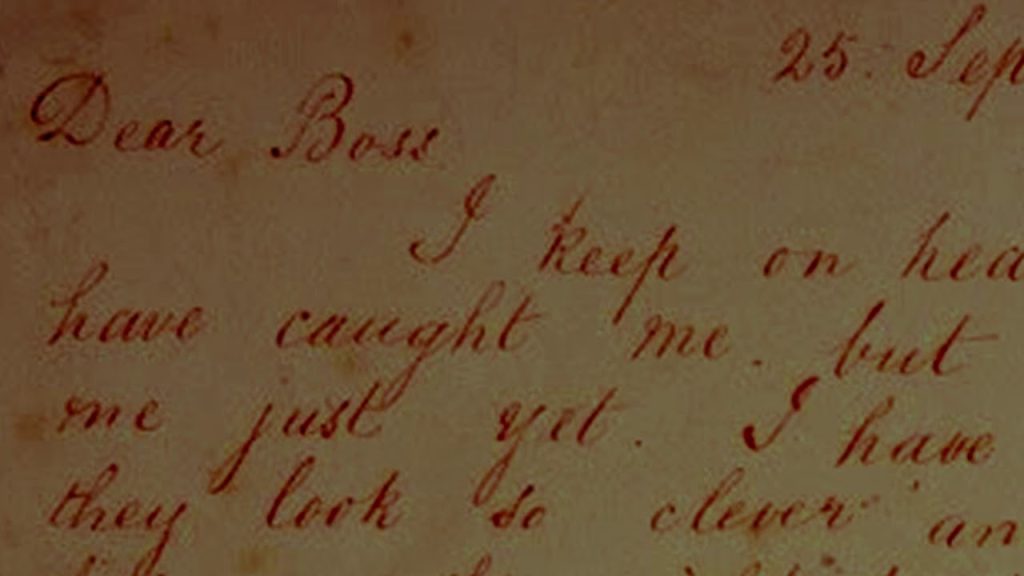 25. Sep
Dear Boss
I keep on hea
have caught me. but
me just yet. I have
they look so clever an